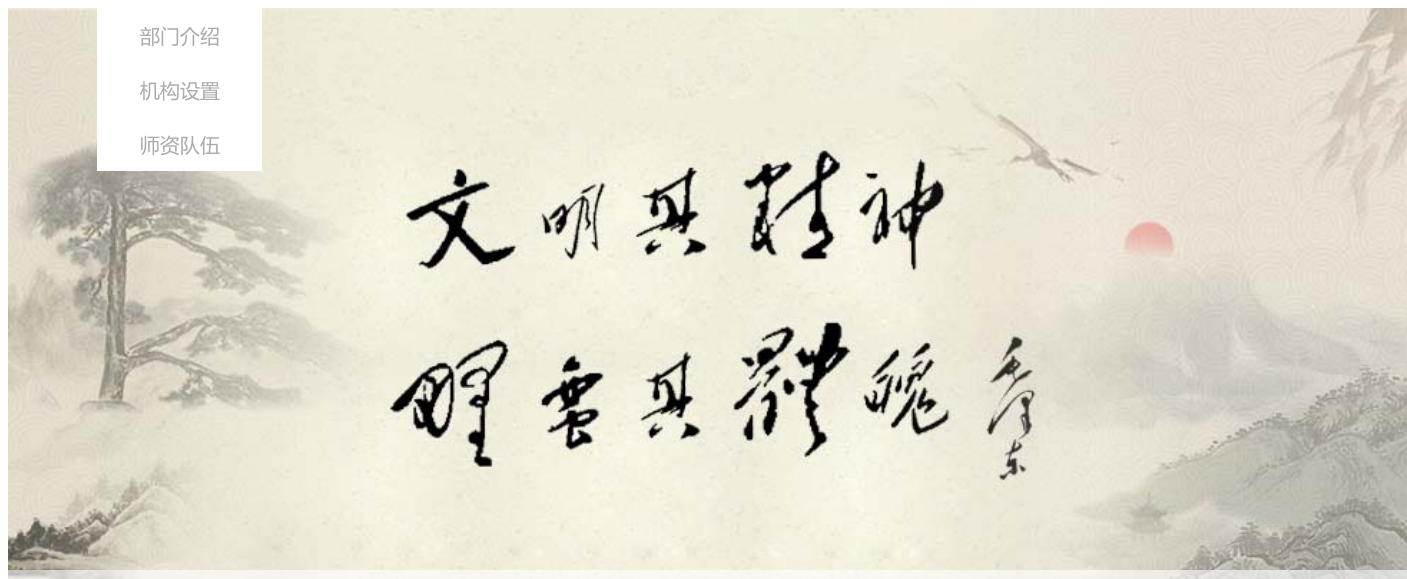 部门介绍
机构设置
师资队伍
文明其精神
野蛮其體魄
毛泽东